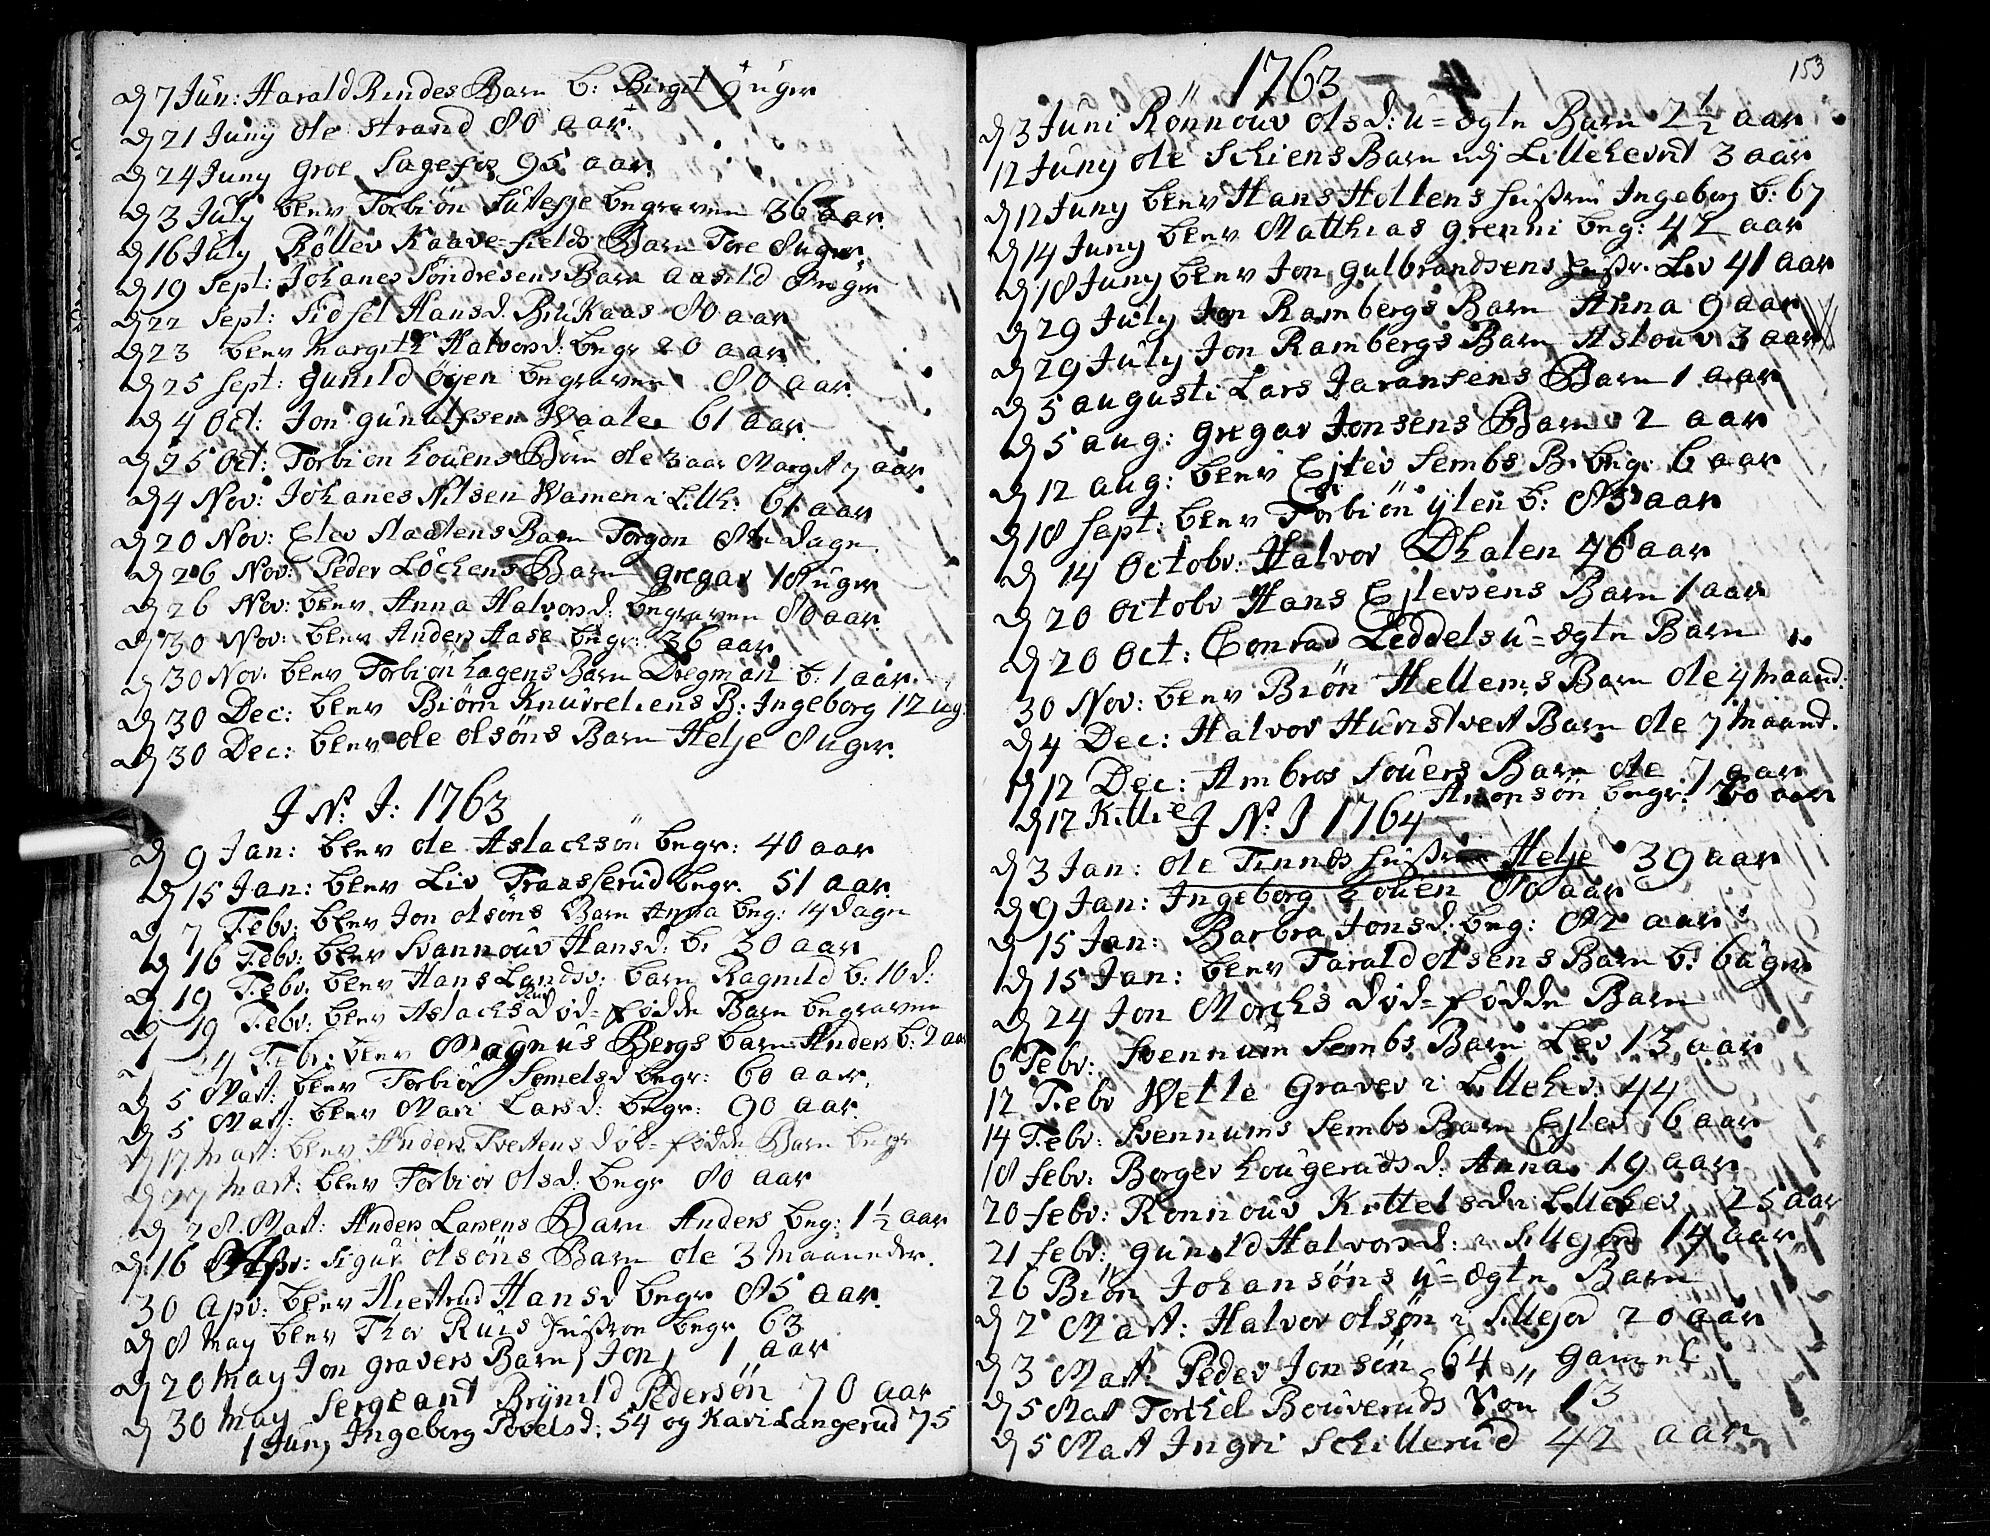 D 7 Jun: Harald Rindes Barn b: Birgit 9 uger
D 21 Juny Ole Strand 80 aar.
D 24 Juny Groe Sagefos 95 aar
D 3 July blev Torbiön begraven 36 aar.
D 16 July Röllev Kaave-fields Barn Tore 8 uger.
D 19 Sept: Johanes Söndresens Barn Aasild uger
D 22 Sept: Sidsel Hansd. 80 aar
D 23 blev Margith Halvorsd: begr 20 aar
D 25 Sept: Gunild Öyen begraven 80 aar.
D 4 Oct: Jon Gunulfsen Waale 61 aar.
D 25 Oct: Torbion Louens Börn Ole 3 aar Margit 7 aar
D 4 Nov: Johanes Nilsen Wamen i Lillh: 61 aar
D 20 Nov: Elev Staatens Barn Torgon 8te Dage.
D 26 Nov: Peder Löchens Barn Gregar 18 uger
D 26 Nov: blev Anna Halvorsd: begraven 80 aar.
D 30 Nov: blev Anders Aase begr: 36 aar
D 30 Nov: blev Torbion Hagens Barn Dregman b: 1 aar.
D 30 Dec: blev Biörn Knurreliens B: Ingeborg 12 ug:
D 30 Dec: blev Ole Olsöns Barn Helje 8 uger.
J N. J: 1763
D 9 Jan: blev Ole Aslachsön begr: 40 aar
D 15 Jan: blev Liv Traasserud begr. 51 aar
D 7 Febr: blev Jon Olsöns Barn Anna beg: 14 dage
D 16 Febr: blev Svannouv Hansd: b: 30 aar
D 19 Febr: blev Hans Landsv: barn Ragnild b: 10 d:
D 19 Febr: blev Aslachs död-födde Barn begraven
24 Febr: blev Magnus Bergs barn Anders b: 2 aar
D 5 Mart: blev Torbiör Somelsd begr: 60 aar,
D 5 Mart: blev Mari Larsd: begr: 90 aar.
D 17 Mart: blev Anders Tvetens död-födde Barn begr
D 27 Mart: blev Torbiör Olsd: begr 80 aar
D 28 Mart: Anders Larsens Barn Anders beg: 1½ aar
D: 16 Apr: Sigur Olsöns Barn Ole 3 Maaneder.
30 Apr: blev Hansd begr 85 aar.
D 8 May blev Thor Ruis Hustroe begr 63
D 20 May Jon Gravers Barn, Jon, 1 aar
D 30 May Sergeant Brynild Pedersön 70 aar
1 Juny Ingeborg Povelsd: 54 og Kari Langerud 75
153
1763
D 3 Juni Rönnouv Olsd: u-ægte Barn 2½ aar
12 Juny Ole Schiens Barn udj Lilleherrit 3 aar
D 12 Juny blev Hans Holtens Hustrue Ingeborg b: 67
D 14 Juny blev Matthias Grenni beg: 42 aar
D 18 Juny blev Jon Gulbrandsens Hustr. Liv 41 aar
D 29 July Jon Rambergs Barn Anna 9 aar
D 29 July Jon Rambergs Barn Aslouv 3 aar
D 5 Augusti Lars Jaransens Barn 1 aar
D 5 Aug: Gregar Jonsens Barn 2 aar
D 12 Aug: blev Ejlev Sembs B. beg: 6 aar
D 18 Sept: blev Torbiön ylen b: 85 aar
D 14 Octobr: Halvor Dhalen 46 aar
D 20 Octobr Hans Ejlevsens Barn 1 aar
D 20 Oct: Conrad Leddels u-ægte Barn
30 Nov: blev Biön Hellems Barn Ole 4 Maand:
D 4 Dec: Halvor Hunstvett Barn Ole 7 Maand.
D 12 Dec: Ambros Souers Barn Ole 7 aar
D 17 Killie Amonsön begr: 70 aar
J N. J 1764
D 3 Jan: Ole Tinnes Hustrue Helje 39 aar
D 9 Jan: Ingeborg Louen 80 aar
D 15 Jan: Barbra Jonsd: beg: 82 aar
D 15 Jan: blev Tarald Olsens Barn b: 6 uger
D 24 Jon Morchs död-födde Barn
6 Febr: Svennum Sembs Barn Lev 13 aar
12 Febr Wetle Graver i Lilleher: 44
14 Febr: Svennums Sembs Barn Ejlev 6 aar
18 Febr: Borger Hougeruds d: Anna 19 aar
20 Febr: Rönnouv Kittelsd i Lilleher. 25 aar
21 Febr: Gunild Halvorsd: i Sillejord 14 aar
26 Biön Johansöns u-ægte Barn
D 2 Mart: Halvor Olsön i Sillejor 20 aar
D 3 Mart: Peder Jonsön 64 „ gamel
D 5 Mart Torchel Bouveruds Sön 13
D 5 Mart Ingri Schillerud 42 aar